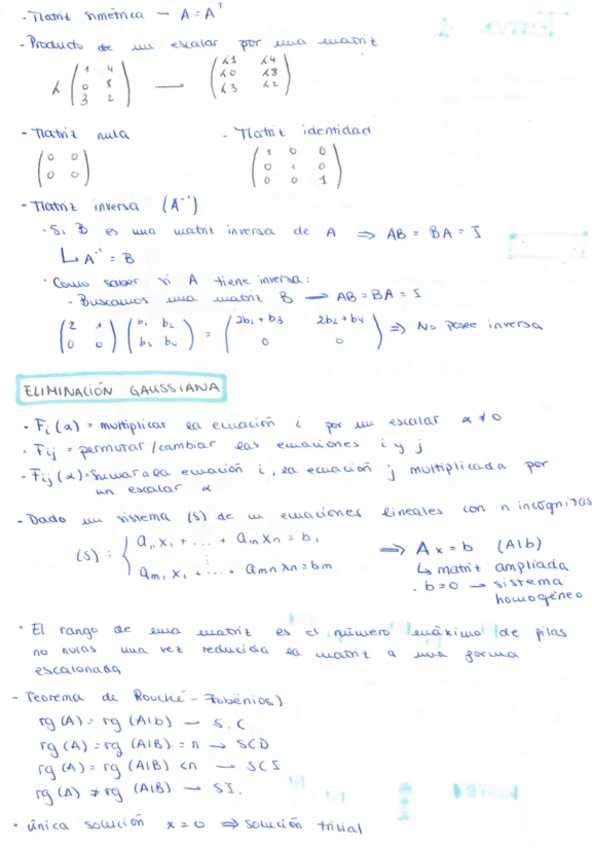 - Matriz simétrica — A = Aᵀ
- Producto de un escalar por una matriz
λ ( 1 4 ; 0 8 ; 3 2 ) — ( λ1 λ4 ; λ0 λ8 ; λ3 λ2 )
- Matriz nula - Matriz identidad
( 0 0 ; 0 0 ) ( 1 0 0 ; 0 1 0 ; 0 0 1 )
- Matriz inversa (A⁻¹)
· Si B es una matriz inversa de A ⇒ AB = BA = I
↳ A⁻¹ = B
· Como saber si A tiene inversa:
- Buscamos una matriz B → AB = BA = I
( 2 1 ; 0 0 ) ( b₁ b₂ ; b₃ b₄ ) = ( 2b₁ + b₃ 2b₂ + b₄ ; 0 0 ) ⇒ No posee inversa
ELIMINACIÓN GAUSSIANA
- Fi (α) = multiplicar la ecuación i por un escalar α ≠ 0
- Fij = permutar / cambiar las ecuaciones i y j
- Fij (α) = Sumar a la ecuación i, la ecuación j multiplicada por
un escalar α
- Dado un sistema (S) de m ecuaciones lineales con n incognitas
(S) : { a₁₁ x₁ + ... + a₁n xn = b₁ ⇒ Ax = b (A|b)
⋮ ↳ matriz ampliada
am₁ x₁ + ... + amn xn = bm . b = 0 → sistema
homogéneo
· El rango de una matriz es el número máximo de filas
no nulas una vez reducida la matriz a una forma
escalonada
- Teorema de Rouché - Frobënios)
rg (A) = rg (A|b) — S.C
rg (A) = rg (A|B) = n → SCD
rg (A) = rg (A|B) < n → SCI
rg (A) ≠ rg (A|B) — SI.
· única solución x = 0 ⇒ solución trivial